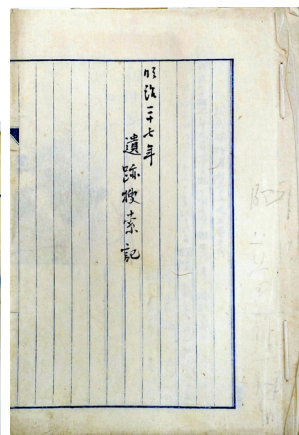 明治二十七年
遺跡捜索記